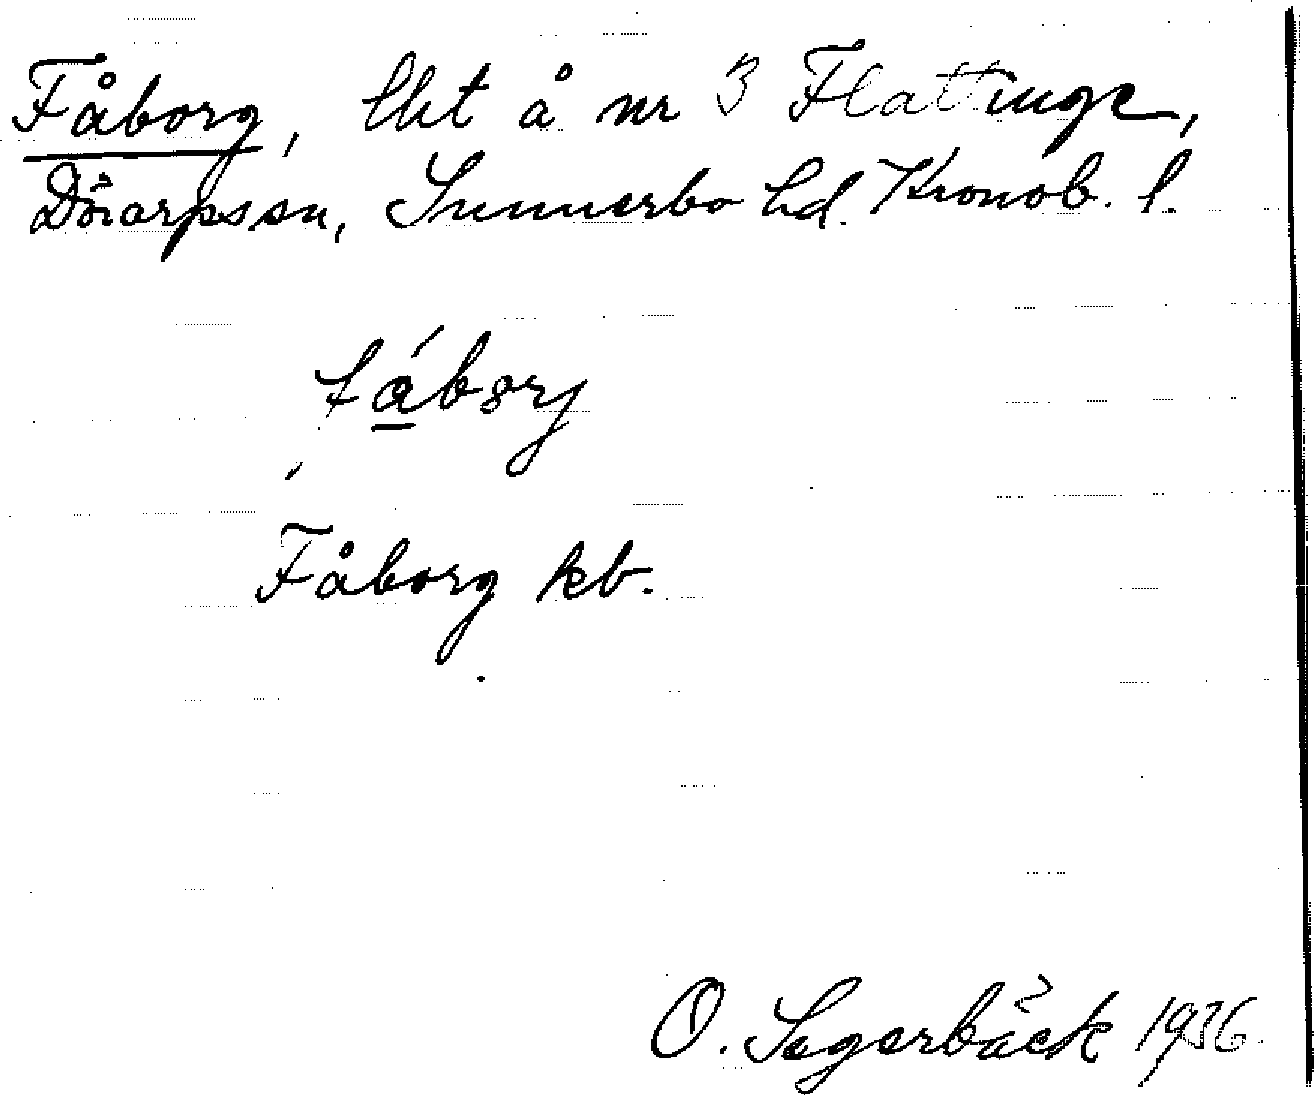 Fåborg, lht å nr 3 Flattinge,
Dörarps sn, Sunnerbo hd. Kronob. l.
fábory
Fåborg kb.
O. Segerbäck 1936